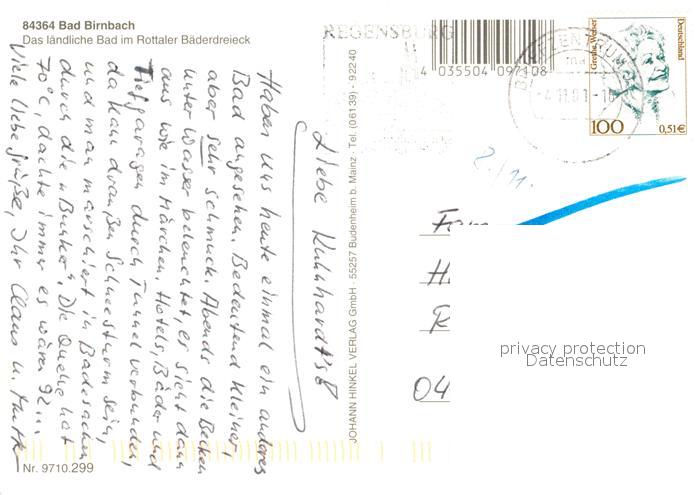 84364 Bad Birnbach
Das ländliche Bad im Rottaler Bäderdreieck
Liebe Kuhhardt's!
Haben uns heute einmal ein anderes
Bad angesehen. Bedeutend kleiner,
aber sehr schmuck. Abends die Becken
unter Wasser beleuchtet, er sieht dann
aus wie im Märchen. Hotels, Bäder und
Tiefgaragen durch Tunnel verbunden,
da kann draußen Schneesturm sein,
und man marschiert in Badesachen
durch die "Bunker". Die Quelle hat
70°C, dachte immer es wären 92...
Viele liebe Grüße, Ihr Claus u. Ruth
Nr. 9710.299
JOHANN HINKEL VERLAG GmbH · 55257 Budenheim b. Mainz · Tel. (06139) - 92240
4 035504 097108
REGENSBURG
BRIEFZENTRUM
-4.11.01-18
Grethe Weiser
Deutschland
100
0,51€
2./11.
Fam
H
R
04
privacy protection
Datenschutz